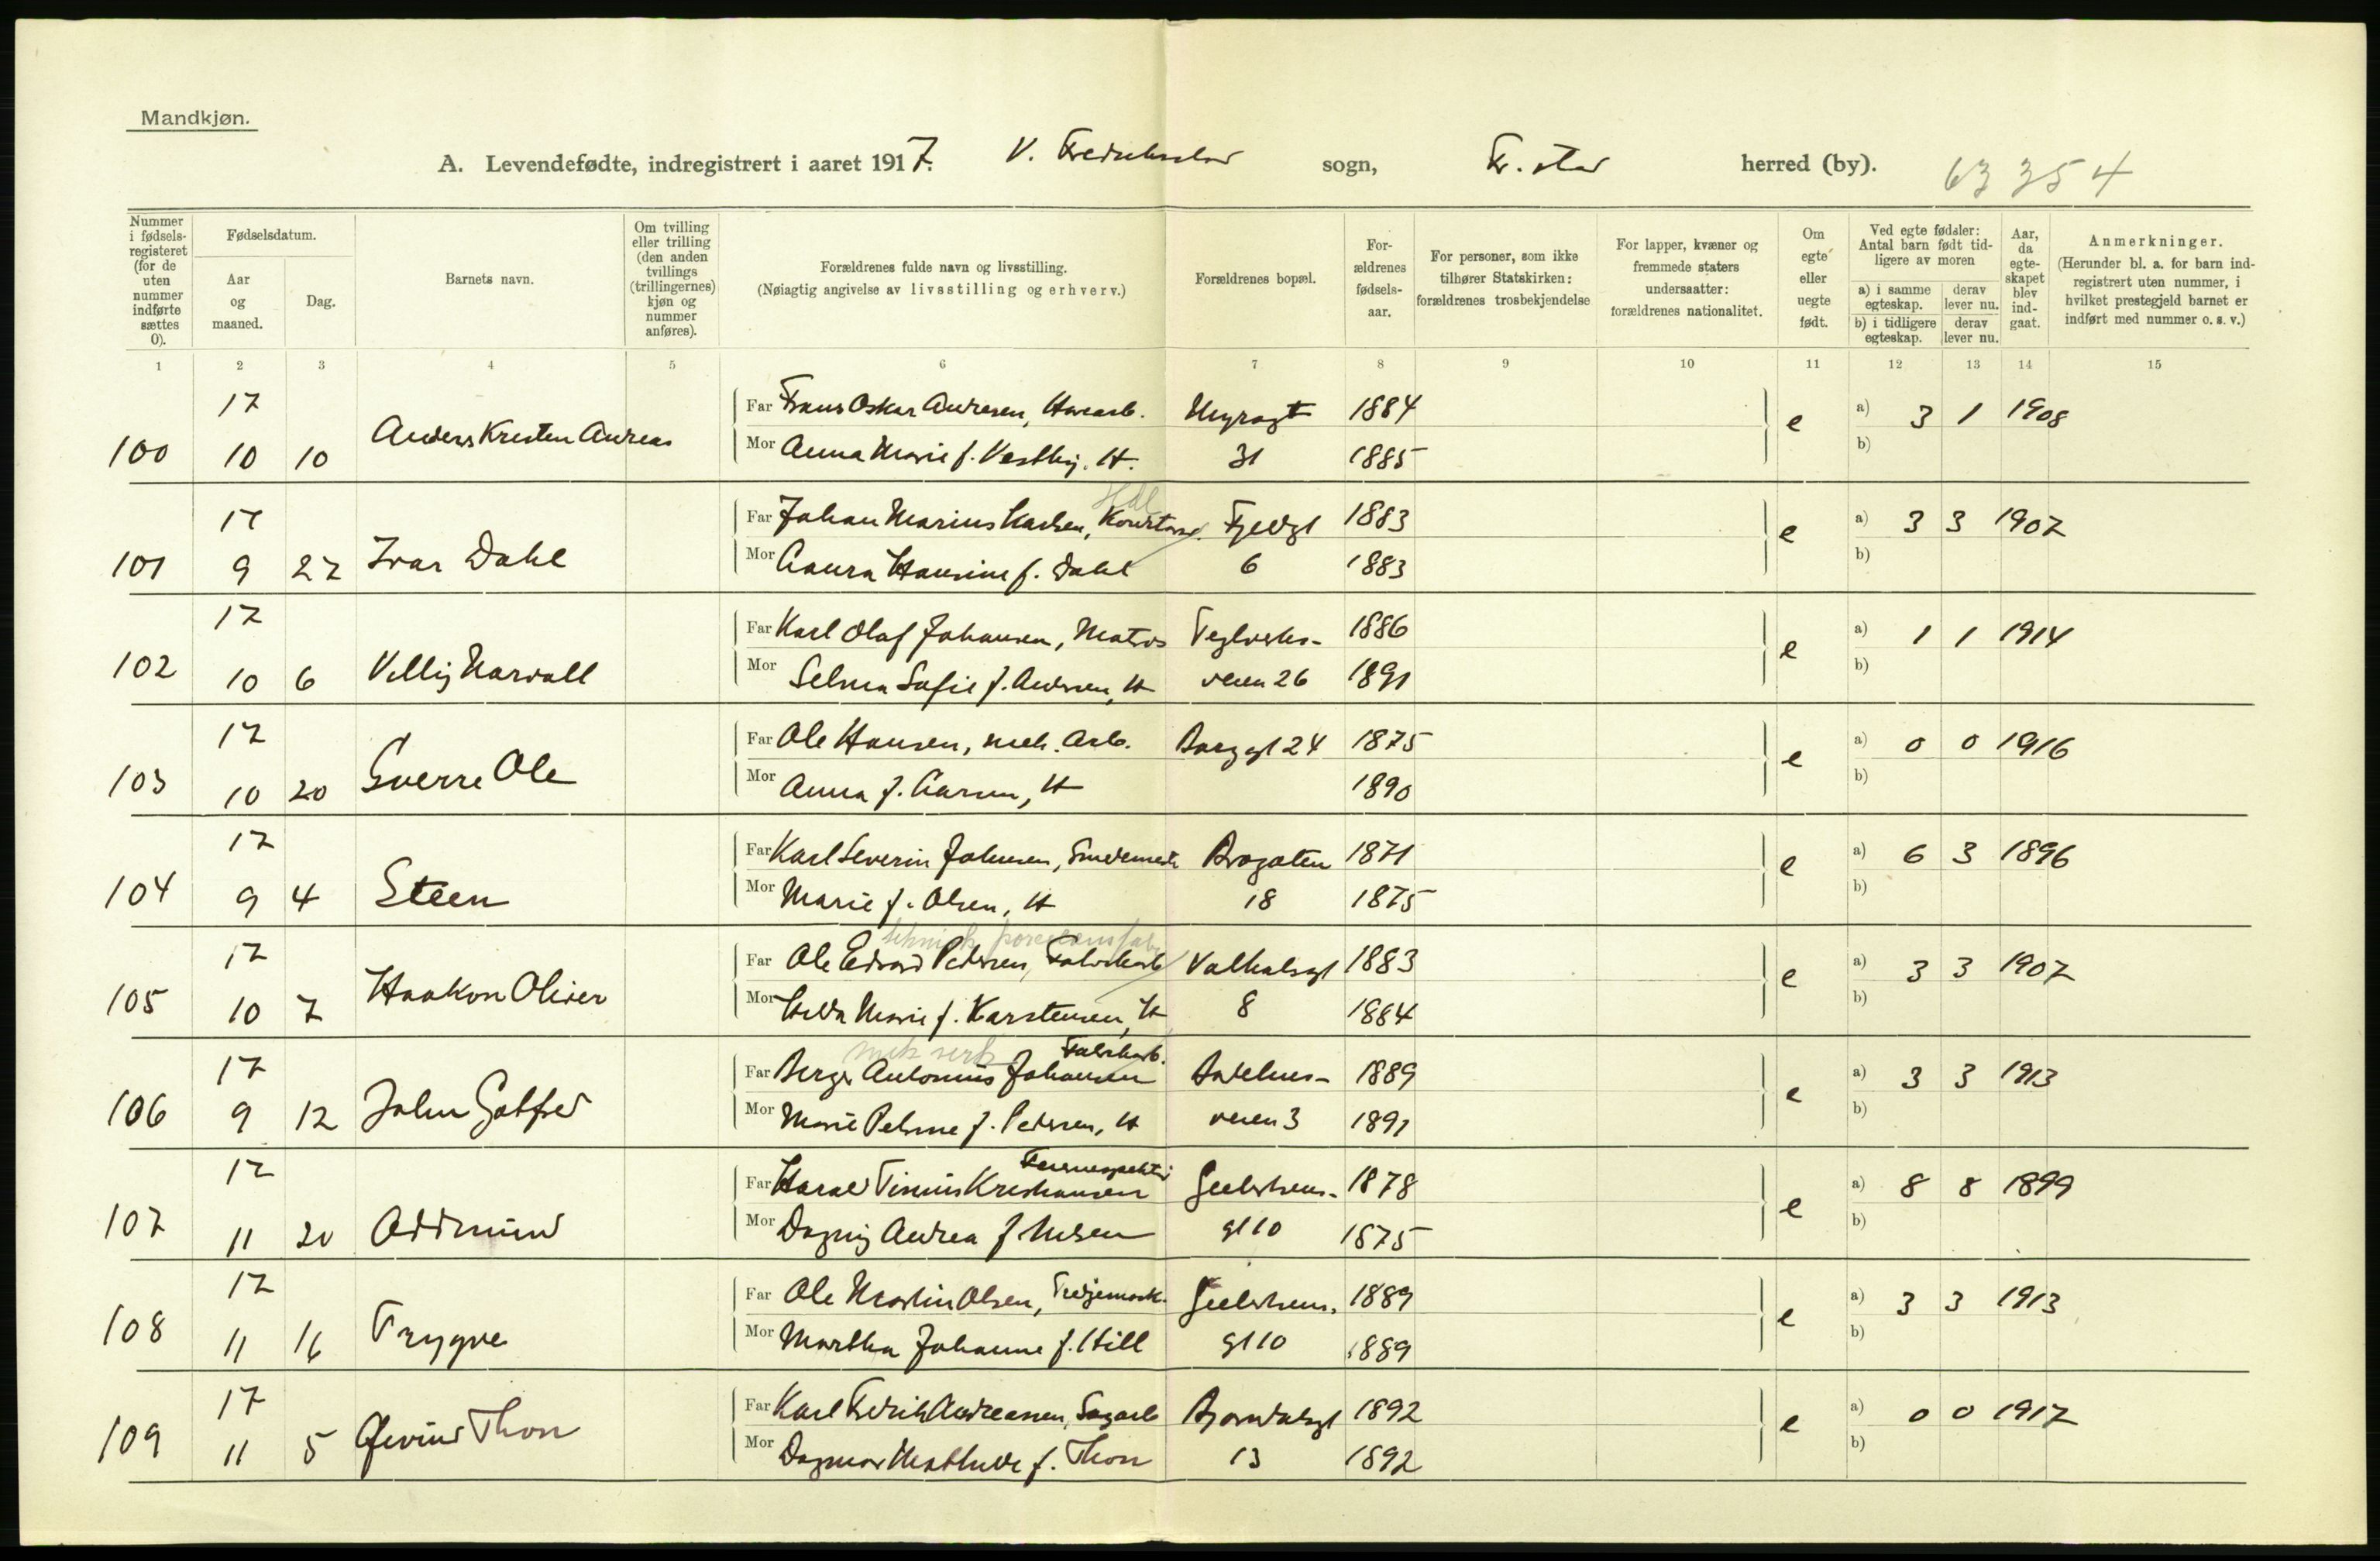 Mandkjøn.
A. Levendefødte, indregistrert i aaret 1917. V. Fredrikstad sogn, Fr.stad herred (by). 63354
Nummer i fødselsregisteret (for de uten nummer indførte sættes 0).
Fødselsdatum.
Aar og maaned.
Dag.
Barnets navn.
Om tvilling eller trilling (den anden tvillings (trillingernes) kjøn og nummer anføres).
Forældrenes fulde navn og livsstilling.
(Nøiagtig angivelse av livsstilling og erhverv.)
Forældrenes bopæl.
Forældrenes fødselsaar.
For personer, som ikke tilhører Statskirken: forældrenes trosbekjendelse
For lapper, kvæner og fremmede staters undersaatter: forældrenes nationalitet.
Om egte eller uegte født.
Ved egte fødsler: Antal barn født tidligere av moren
a) i samme egteskap. derav lever nu.
b) i tidligere egteskap. derav lever nu.
Aar, da egteskapet blev indgaat.
Anmerkninger.
(Herunder bl. a. for barn indregistrert uten nummer, i hvilket prestegjeld barnet er indført med nummer o. s. v.)
1 2 3 4 5 6 7 8 9 10 11 12 13 14 15
17 Far Frans Oskar Andresen, Havearb. 1884 e a) 3 1 1908
100 10 10 Anders Kresten Andreas Mor Anna Marie f. Vestby. H. 31 1885 b)
17 Hdl Far Johan Marius Karlsen, Fjeldgt 1883 e a) 3 3 1907
101 9 27 Ivar Dahl Mor Laura Hansine f. Dahl 6 1883 b)
17 Far Karl Olaf Johansen, Matros Teglverks- 1886 e a) 1 1 1914
102 10 6 Villy Narvall Mor Selma Sofie f. Andersen, H veien 26 1891 b)
17 Far Ole Hansen, mek. Arb. Borggt 24 1875 e a) 0 0 1916
103 10 20 Sverre Ole Mor Anna f. Larsen, H 1890 b)
17 Far Karl Severin Johnsen, Smedemester Brogaten 1871 e a) 6 3 1896
104 9 4 Steen Mor Marie f. Olsen, H 18 1875 b)
teknisk porcelænsfabr
17 Far Ole Edvard Pedersen, Fabrikarb Valhalsgt 1883 e a) 3 3 1907
105 10 7 Haakon Oliver Mor Hilda Marie f. Karstensen, H 8 1884 b)
mek verk Fabrikarb.
17 Far Berger Antonius Johansen 1889 e a) 3 3 1913
106 9 12 John Gotfred Mor Marie Petrine f. Pedersen, H veien 3 1891 b)
17 Far Harald Kristiansen 1878 e a) 8 8 1899
107 11 20 Oddmund Mor Dagny Andrea f. Nilsen gt 10 1875 b)
17 Far Ole Martin Olsen, Tredjemask. 1889 e a) 3 3 1913
108 11 16 Trygve Mor Martha Johanne f. Hill gt 10 1889 b)
17 Far Karl Fredrik Andreassen, Sagarb Bjørndalsgt 1892 e a) 0 0 1917
109 11 5 Øivind Thon Mor Dagmar Mathilde f. Thon 13 1892 b)